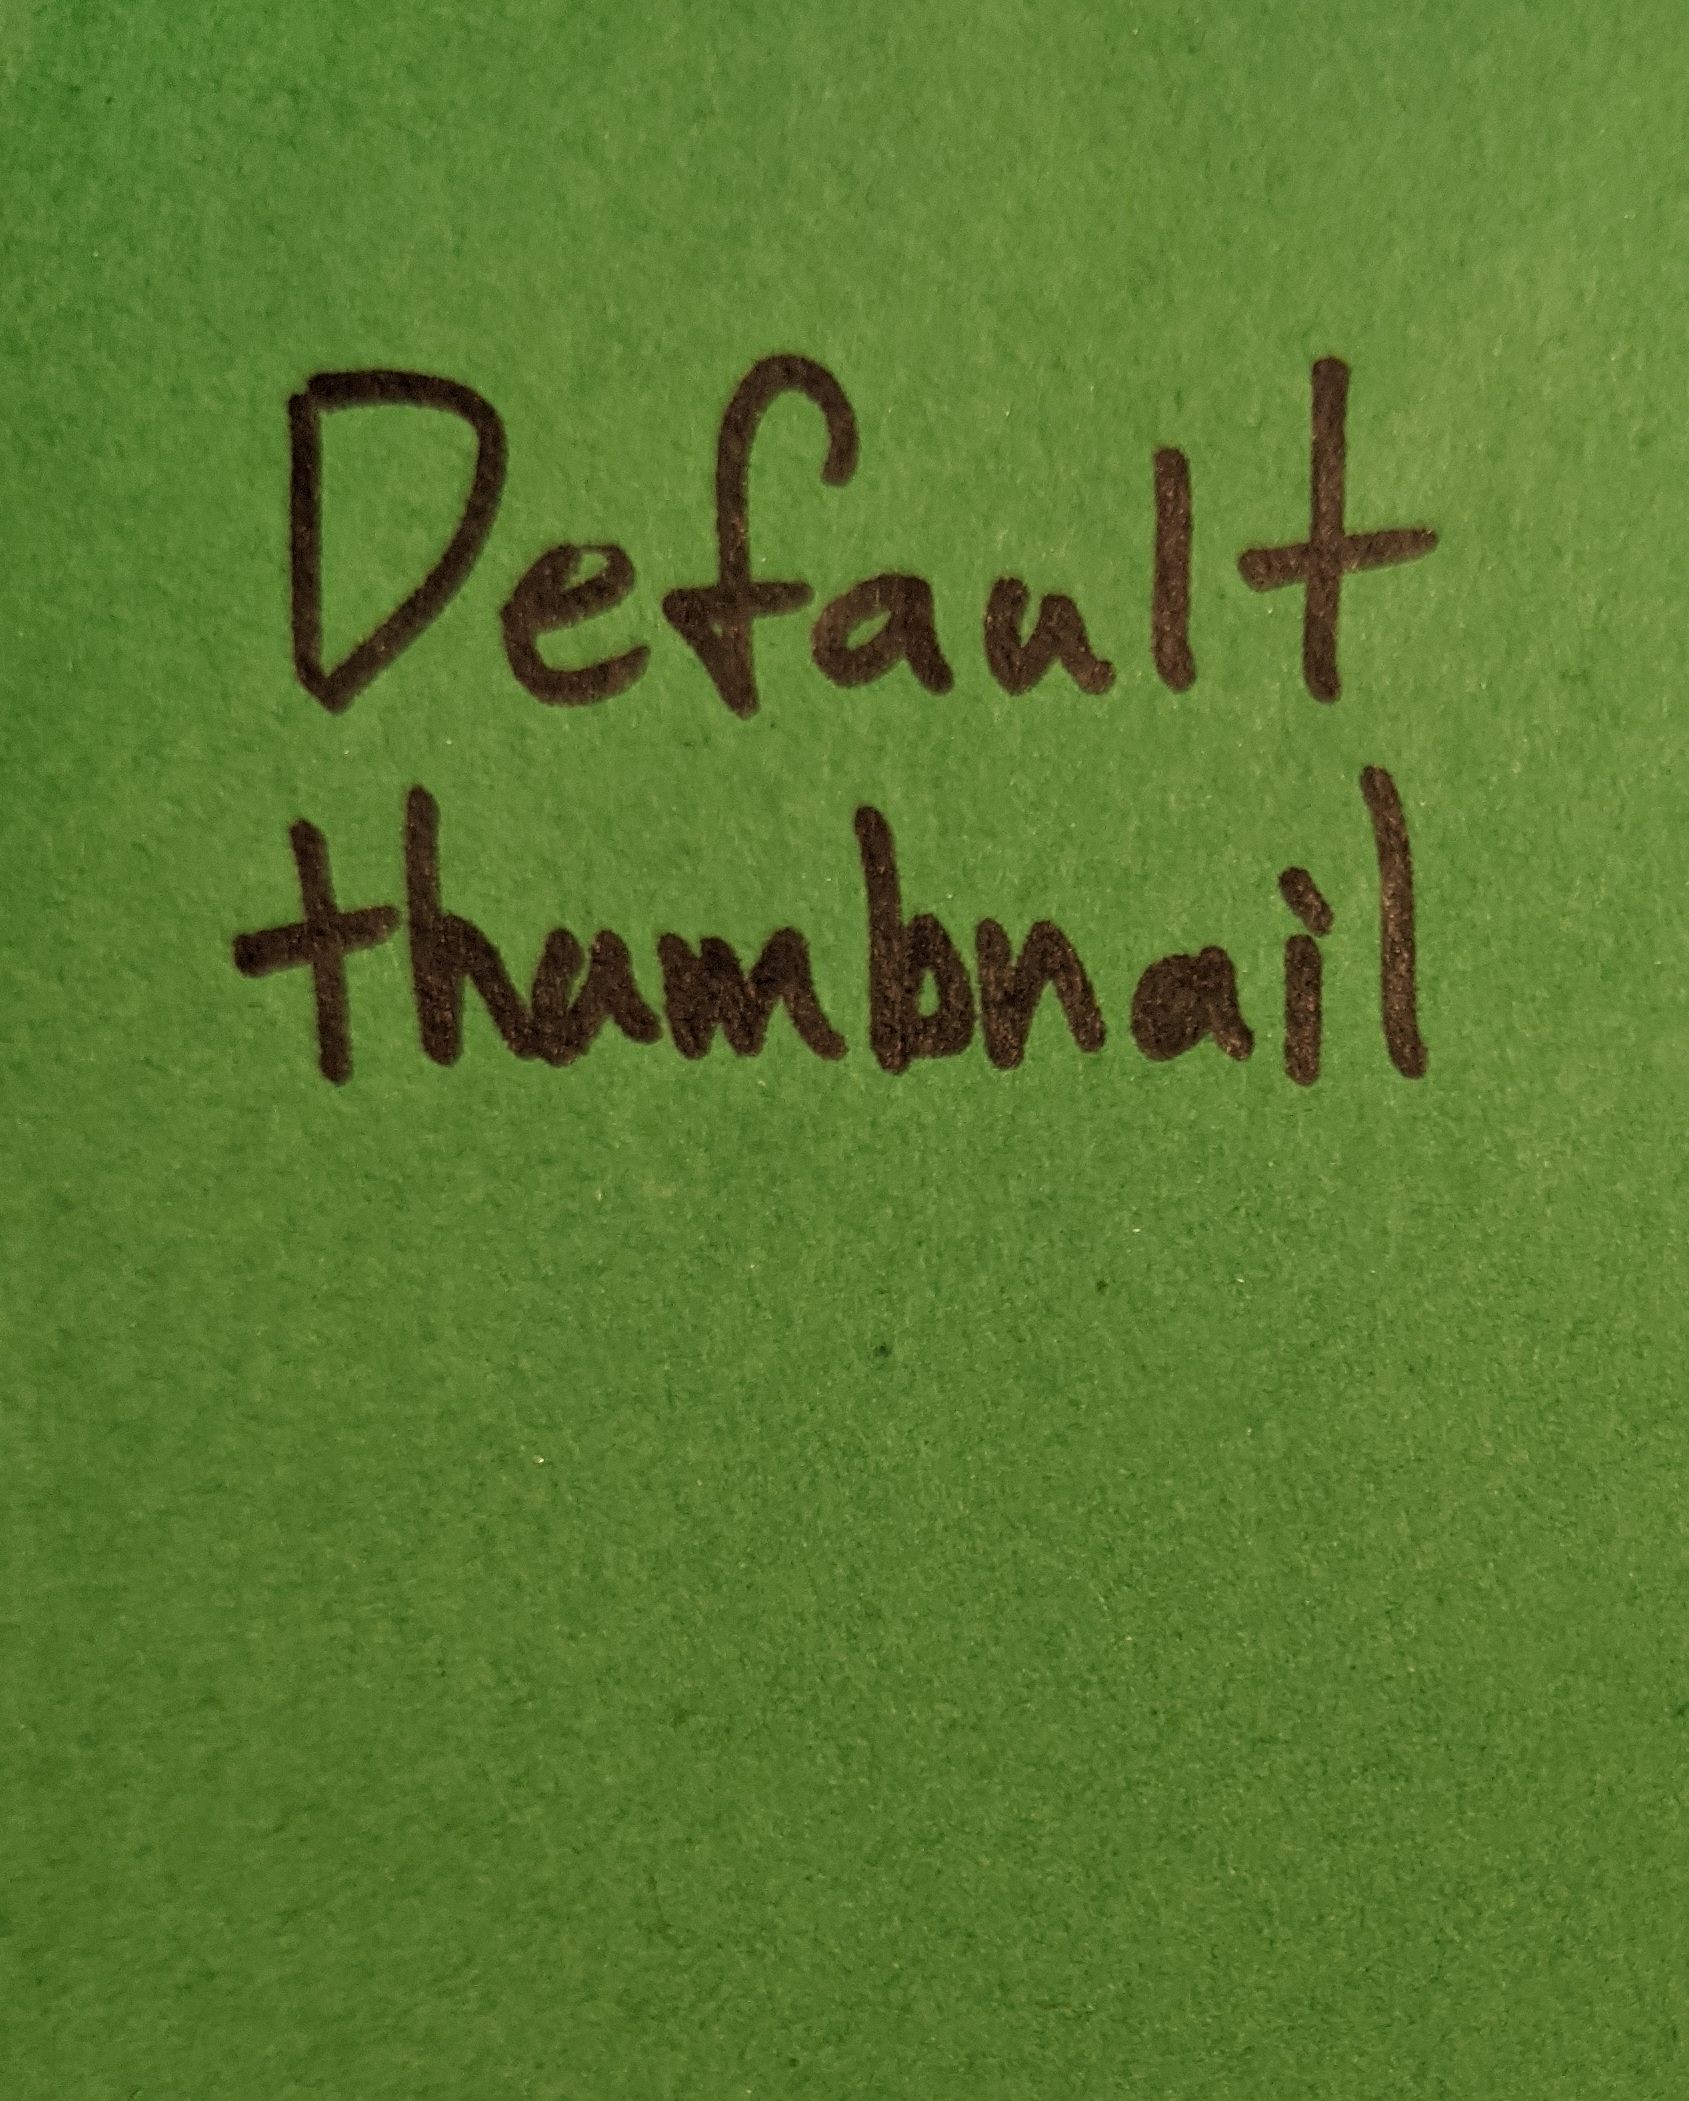 Default
thumbnail